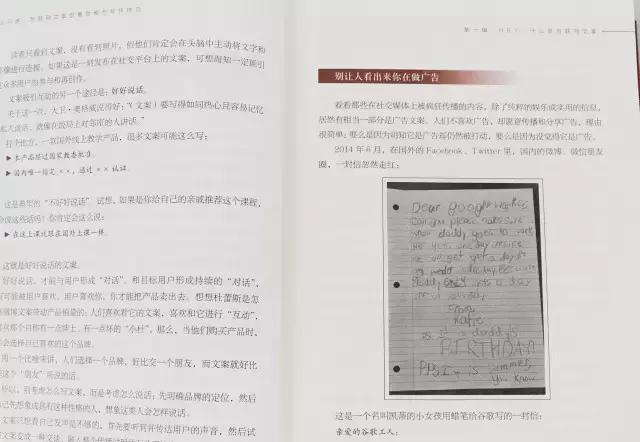 读者只看到文案，没有看到照片，但他们肯定会在头脑中主动将文字和
像进行连接。如果这是一则发布在社交平台上的文案，可想而知一定能引
众多用户的参与和再创作。
文案吸引互动的另一个途径是：好好说话。
关于这一点，大卫·奥格威说得好：“（文案）要写得如同热心且容易记忆
私人谈话，就像在饭局上对邻座的人讲话。”
打个比方，一款国外线上教学产品，很多文案可能这么写：
▶ 本产品经过国家教委批准。
▶ 国内唯一指定××，通过××认证。
这是典型的“不好好说话”。试想，如果是你给自己的亲戚推荐这个课程，
会说这些话吗？你肯定会这么说：
▶ 在这上课就跟在国外上课一样。
这就是好好说话的文案。
好好说话，才能与用户形成“对话”，和目标用户形成持续的“对话”，
可能被用户喜欢，用户喜欢你，你才能把产品卖出去。想想杜蕾斯是怎
微博文案带动产品销量的：人们喜欢看它的文案，喜欢和它进行“互动”，
欢那个自称有一点绅士、有一点坏的“小杜”，那么，当他们购买产品时，
会选择自己喜欢的这个品牌。
用一个比喻来讲，人们选择一个品牌，好比交一个朋友，而文案就好比
这个“朋友”所说的话。
所以，别考虑怎么写文案，而是考虑怎么说话：先明确品牌的定位，然后
己先想象成具有这种性格的人，想象这类人会怎样说话。
文案只想着自己发声是不够的，首先要听到并传达用户的声音，然后试
第一编 什么是互联网文案
别让人看出来你在做广告
看看那些在社交媒体上被疯狂传播的内容，除了纯粹的娱乐或实用的信息，
居然有相当一部分是广告文案。人们不喜欢广告，却愿意传播和分享广告，理由
很简单：要么是因为明知它是广告却仍然被打动，要么是因为没觉得它是广告。
2014年6月，在国外的Facebook、Twitter里，国内的微博、微信朋友
圈，一封信忽然走红：
Dear google worker
Can you please make sure
when daddy goes to work
he gets one day off
From
Katie
P.S. It is daddy's
BIRTHDAY
PPS. It is summer,
You know
这是一个名叫凯蒂的小女孩用蜡笔给谷歌写的一封信：
亲爱的谷歌工人：